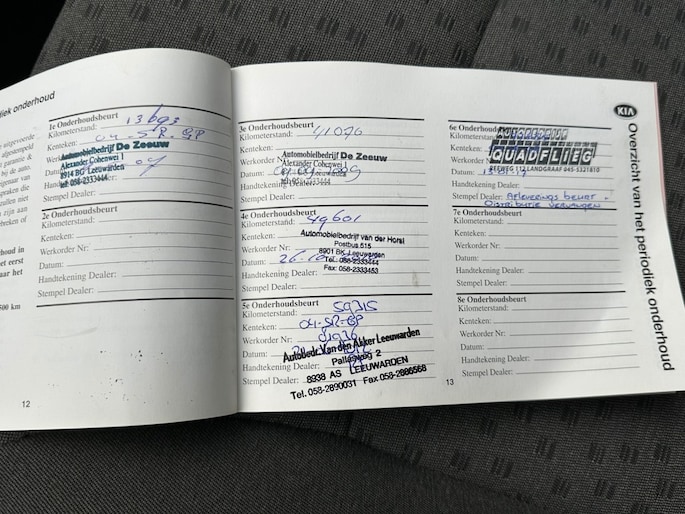 diek onderhoud
uitgevoerde
afgestempeld
garantie &
bij de auto.
1e Onderhoudsbeurt
Kilometerstand: 13693
Kenteken: 04-SR-GP
Werkorder Nr:
Datum:
Handtekening Dealer:
Stempel Dealer:
Automobielbedrijf De Zeeuw
Alexander Cohenweg 1
8914 BG Leeuwarden
tel: 058-2333444
2e Onderhoudsbeurt
Kilometerstand:
Kenteken:
Werkorder Nr:
Datum:
Handtekening Dealer:
Stempel Dealer:
12
3e Onderhoudsbeurt
Kilometerstand: 41076
Kenteken:
Werkorder Nr:
Datum:
Handtekening Dealer:
Stempel Dealer:
Automobielbedrijf De Zeeuw
Alexander Cohenweg 1
Leeuwarden
058-2333444
4e Onderhoudsbeurt
Kilometerstand: 49601
Kenteken:
Werkorder Nr:
Datum:
Handtekening Dealer:
Stempel Dealer:
Automobielbedrijf van der Horst
Postbus 615
8901 BK Leeuwarden
Tel.: 058-2333444
Fax: 058-2333453
5e Onderhoudsbeurt
Kilometerstand: 59315
Kenteken: 04-SR-GP
Werkorder Nr:
Datum:
Handtekening Dealer:
Stempel Dealer:
Autobedr. Van den Akker Leeuwarden
Pallasweg 2
8938 AS LEEUWARDEN
Tel. 058-2890031 Fax 058-2886568
13
6e Onderhoudsbeurt
Kilometerstand:
Kenteken:
Werkorder
Datum:
Handtekening Dealer:
Stempel Dealer: Afleverings beurt +
Distributie vervangen
QUADFLIEG
REEWEG 112 LANDGRAAF 045-5321810
7e Onderhoudsbeurt
Kilometerstand:
Kenteken:
Werkorder Nr:
Datum:
Handtekening Dealer:
Stempel Dealer:
8e Onderhoudsbeurt
Kilometerstand:
Kenteken:
Werkorder Nr:
Datum:
Handtekening Dealer:
Stempel Dealer:
KIA
Overzicht van het periodiek onderhoud